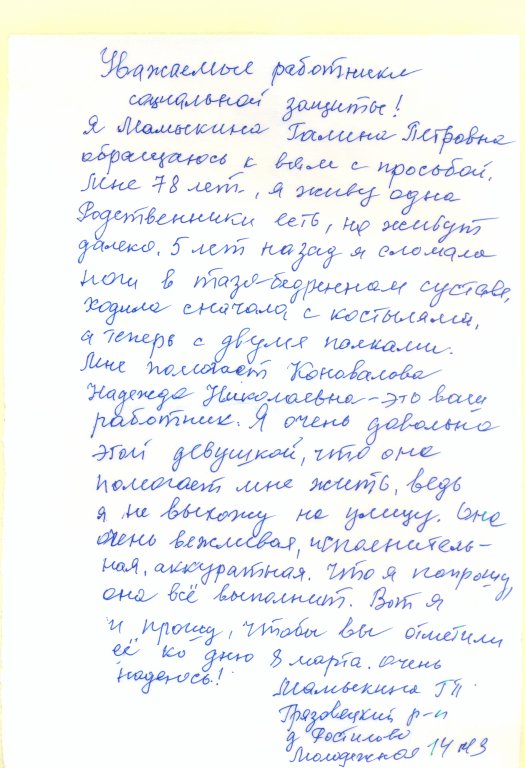 Уважаемые работники
социальной защиты!
Я Мамыкина Галина Петровна
обращаюсь к вам с просьбой.
Мне 78 лет, я живу одна
Родственники есть, но живут
далеко. 5 лет назад я сломала
ноги в тазо-бедренном суставе,
ходила сначала с костылями,
а теперь с двумя палками.
Мне помогает Коновалова
Надежда Николаевна - это ваш
работник. Я очень довольна
этой девушкой, что она
помогает мне жить, ведь
я не выхожу на улицу. Она
очень вежливая, исполнитель-
ная, аккуратная. Что я попрошу,
она всё выполнит. Вот я
и прошу, чтобы вы отметили
её ко дню 8 марта. Очень
надеюсь!
Мамыкина ГП
Грязовецкий р-н
д Ростилово
Молодежная 14